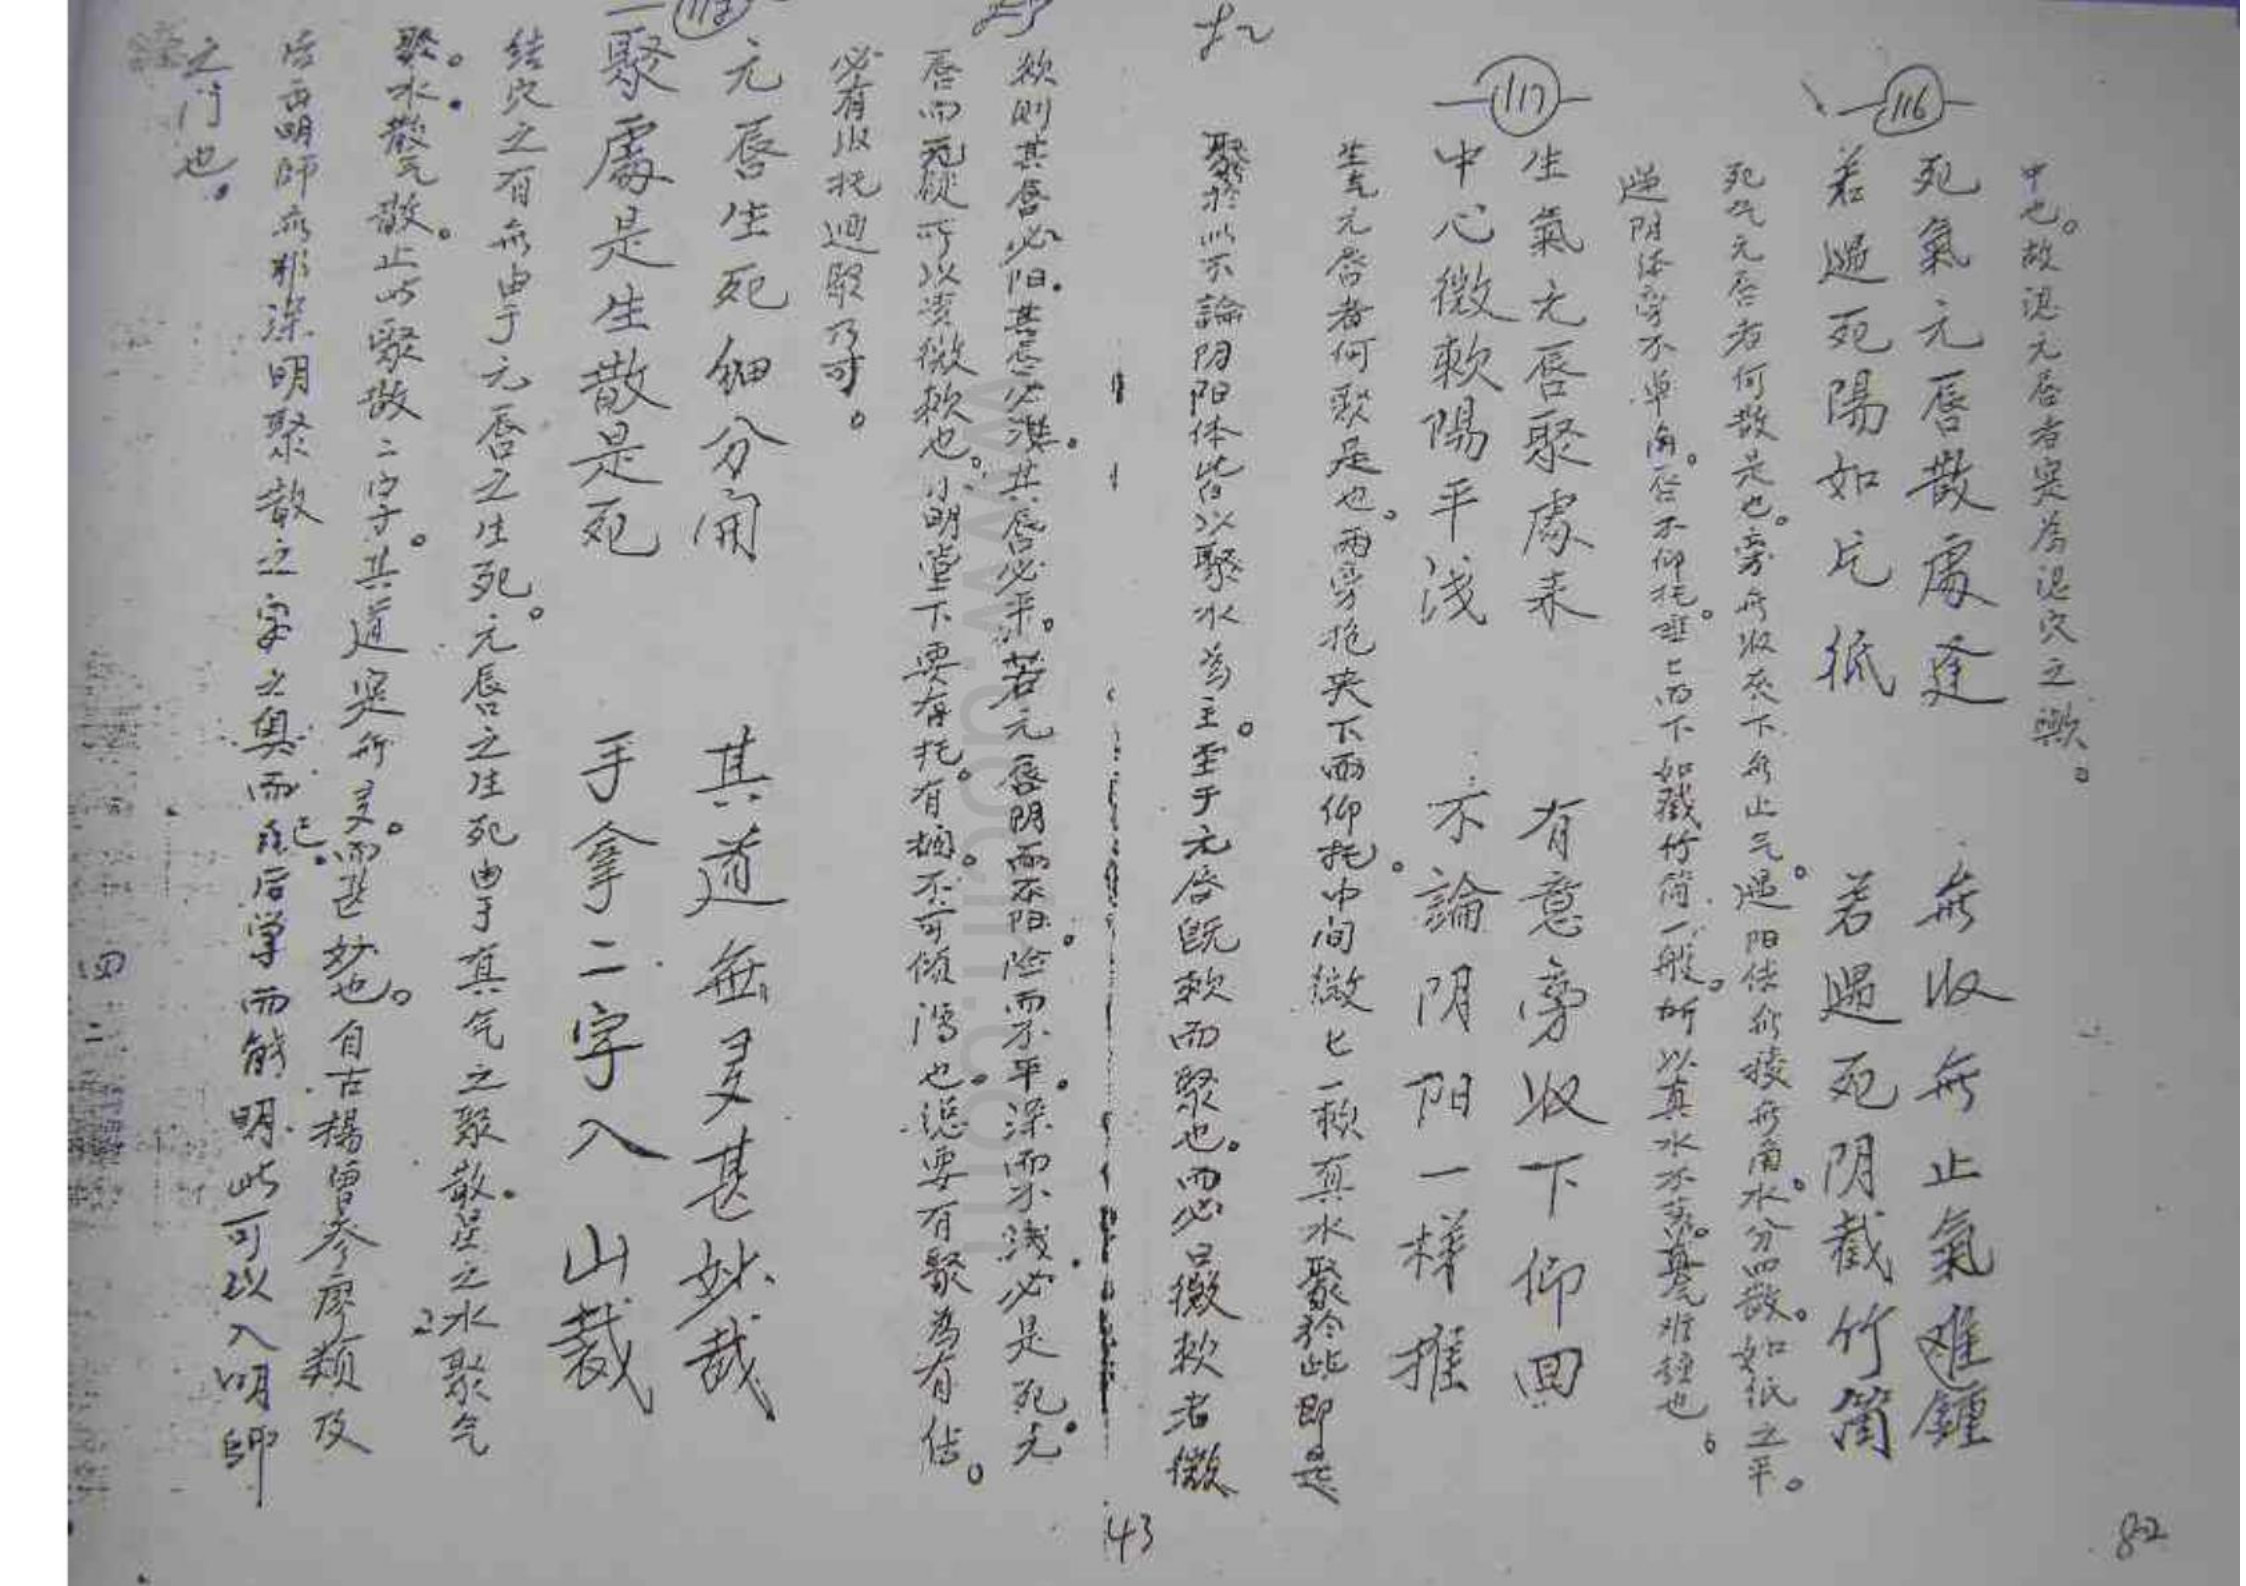 中也。故认元唇者實為认穴之歟。
116
死氣元唇散處逢 無收無止氣难鍾
若遇死陽如片紙 若遇死阴截竹筒
死气元唇者何散是也。旁無收灰下無止气。遇阳体無棱無角。水分四散。如紙之平。
逆阴体旁不单角。唇不仰托。 而下如截竹筒一般。所以真水不蓄。真气难鍾也。
117
生氣元唇聚處来 有意旁收下仰回
中心微軟陽平浅 不論阴阳一樣推
生气元唇者何聚是也。两旁抱夹下面仰托。中间微匕一軟真水聚於此即是
聚於此不論阴阳体皆以聚水為主。至于元唇既軟而聚也。而必曰微軟者微
43
軟则其唇必阳。其唇必淺。其唇必平。若元唇阴而不阳。险而不平。深而不浅。必是死元
唇而无從可以言微軟也。小明堂下要有托。有拥。不可倾泻也。总要有聚為有佳。
必有收托迴聚乃可。
元唇生死细分开 其道無多甚妙哉
一聚處是生散是死 手拿二字入山裁
结穴之有無由于元唇之生死。元唇之生死由于真气之聚散。星之水聚气
聚。水散气散。止此聚散二字。其道实無多。而甚妙也。自古楊曾参廖蔡及
后云明師無非深明聚散之字之奥而已。后学而能明此可以入明師
之门也。
四二
82
www.
.com